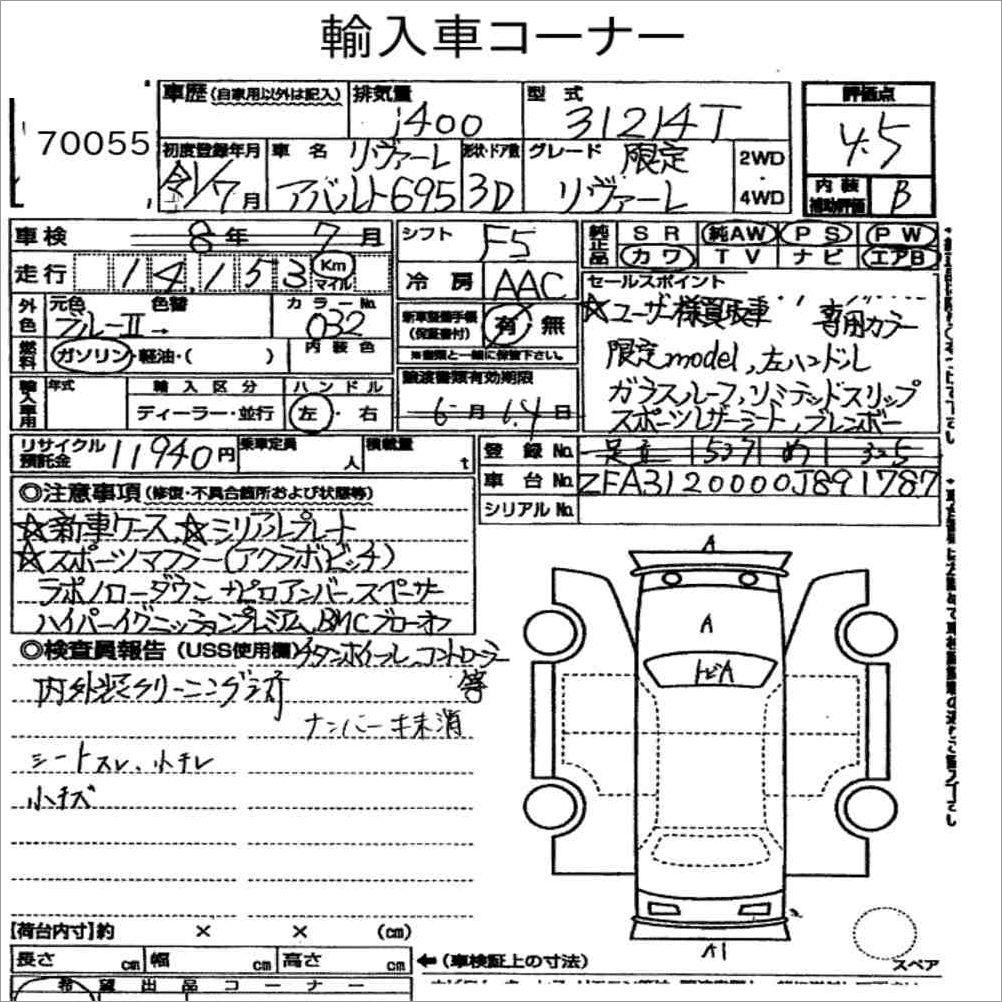 輸入車コーナー
70055
車歴(自家用以外は記入)
排気量 1400
型式 31214T
評価点 4.5
内装補助評価 B
初度登録年月 令1/7月
車名 リヴァーレ
アバルト695
形状・ドア数 3D
グレード 限定
リヴァーレ
2WD・4WD
車検 8年 7月
走行 14,153 Km マイル
シフト F5
冷房 AAC
純正品 SR 純AW PS PW
カワ TV ナビ エアB
外色 元色 ブルーII→ 色替
カラーNo. 032
内装色
燃料 ガソリン・軽油・( )
新車整備手帳(保証書付) 有・無
※書類と一緒に保管下さい。
輸入車用 年式
輸入区分 ディーラー・並行
ハンドル 左・右
譲渡書類有効期限
6月 14日
セールスポイント
☆ユーザー様買取車 専用カラー
限定model,左ハンドル
ガラスルーフ,リミテッドスリップ
スポーツレザーシート,ブレンボー
リサイクル預託金 11940円
乗車定員 人
積載量 t
登録No. 足立 537 め 325
車台No. ZFA3120000J891787
シリアルNo.
◎注意事項(修復・不具合箇所および状態等)
☆新車ケース、☆シリアルプレート
☆スポーツマフラー(アクラポビッチ)
ラポノローダウン ナピロアンバースペーサー
ハイパーイグニッションプレミアム,BMCブローオフ
◎検査員報告(USS使用欄)
チタンホイール,コントローラー等
内外装クリーニング済
ナンバーキ未消
シートスレ、小キレ
小キズ
A
A
トビA
A1
スペア
【荷台内寸】約 × × (cm)
長さ cm 幅 cm 高さ cm
←(車検証上の寸法)
希望出品コーナー